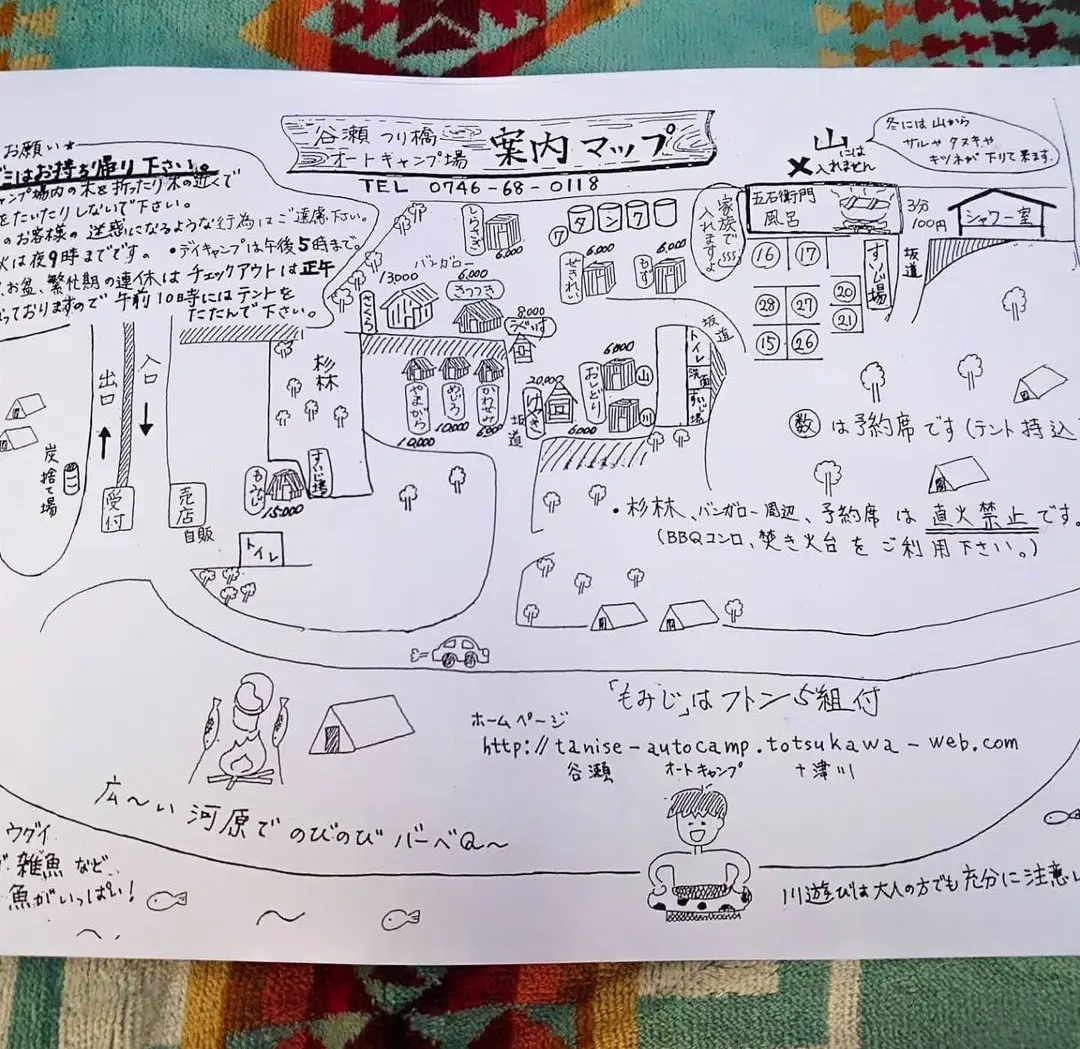 お願い★
ゴミはお持ち帰り下さい。
ャンプ場内の木を折ったり木の近くで
をたいたりしないで下さい。
のお客様の迷惑になるような行為はご遠慮下さい。
火は夜9時までです。 •デイキャンプは午後5時まで。
お盆、繁忙期の連休はチェックアウトは正午
っておりますので午前10時にはテントを
たたんで下さい。
谷瀬つり橋
オートキャンプ場
案内マップ
TEL 0746-68-0118
山
には
✕入れません
冬には山から
サルやタヌキや
キツネが下りて来ます.
家族で
入れますよ
五右衛門
風呂
3分
100円
シャワー室
坂道
すいじ場
⑯ ⑰
㉘ ㉗ ⑳
㉑
⑮ ㉖
ワタンク
しらさぎ
6.000
せきれい
6.000
もず
6.000
バンガロー
13000
さくら
6.000
きつつき
8.000
うぐいす
やまがら
10.000
めじろ
10.000
かわせみ
6.000
坂道
20.000
けやき
おしどり
6.000
山
川
6.000
坂道
トイレ
洗面
すいじ場
杉林
すいじ場
もみじ
15.000
トイレ
出口
入口
炭捨て場
受付
売店
自販
数は予約席です(テント持込
•杉林、バンガロー周辺、予約席は直火禁止です。
(BBQコンロ、焚き火台をご利用下さい。)
「もみじ」はフトン5組付
ホームページ
http://tanise-autocamp.totsukawa-web.com
谷瀬 オートキャンプ 十津川
広〜い河原でのびのびバーベQ〜
ウグイ
雑魚など
魚がいっぱい!
川遊びは大人の方でも充分に注意し